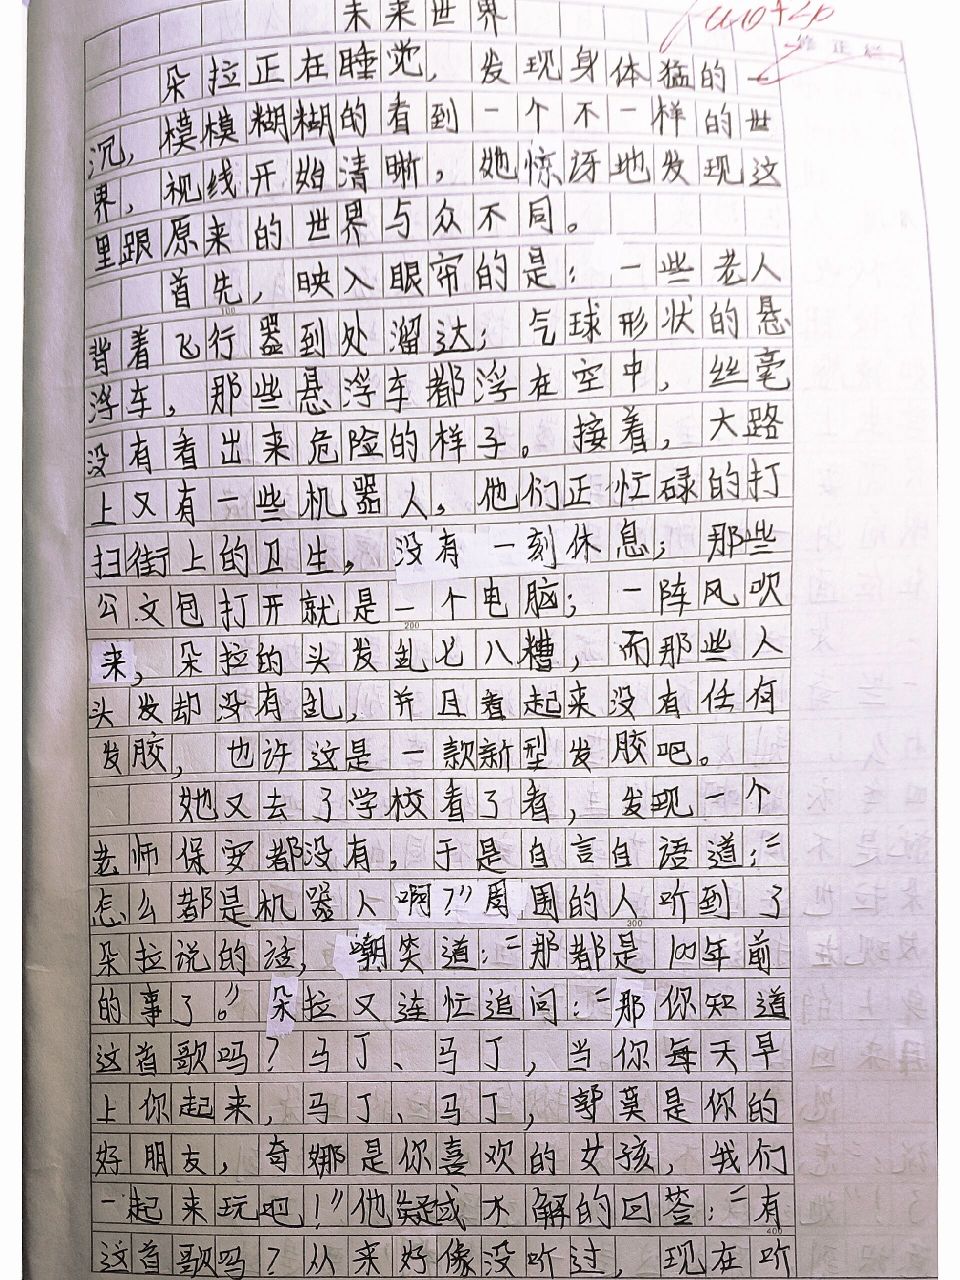 未来世界
朵拉正在睡觉，发现身体猛的一
沉，模模糊糊的看到一个不一样的世
界，视线开始清晰，她惊讶地发现这
里跟原来的世界与众不同。
首先，映入眼帘的是：一些老人
背着飞行器到处溜达；气球形状的悬
浮车，那些悬浮车都浮在空中，丝毫
没有看出来危险的样子。接着，大路
上又有一些机器人，他们正忙碌的打
扫街上的卫生，没有一刻休息；那些
公文包打开就是一个电脑；一阵风吹
200
来，朵拉的头发乱七八糟，而那些人
头发却没有乱，并且看起来没有任何
发胶，也许这是一款新型发胶吧。
她又去了学校看了看，发现一个
老师保安都没有，于是自言自语道：“
怎么都是机器人啊？”周围的人听到了
300
朵拉说的话，嘲笑道：“那都是100年前
的事了。”朵拉又连忙追问：“那你知道
这首歌吗？马丁、马丁，当你每天早
上你起来，马丁、马丁，郭莫是你的
好朋友，奇娜是你喜欢的女孩，我们
一起来玩吧！”他疑惑不解的回答：“有
400
这首歌吗？从来好像没听过，现在听